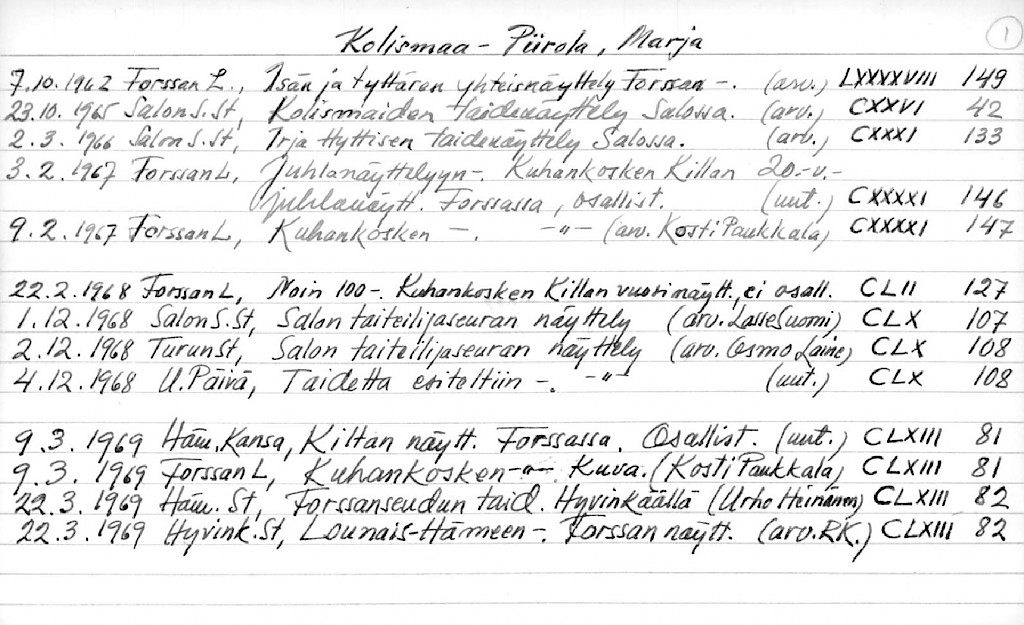 Kolismaa - Piirola, Marja
1
7.10.1962 Forssan L., Isän ja tyttären yhteisnäyttely Forssan -. (arv.) LXXXXVIII 149
23.10.1965 Salon S.St, Kolismaiden taidenäyttely Salossa. (arv.) CXXVI 42
2.3.1966 Salon S.St, Irja Hyttisen taidenäyttely Salossa. (arv.) CXXXI 133
3.2.1967 Forssan L, Juhlanäyttelyyn -. Kuhankosken Killan 20.-v.-
juhlanäytt. Forssassa, osallist. (uut.) CXXXXI 146
9.2.1967 Forssan L, Kuhankosken -. -"- (arv. Kosti Paukkala) CXXXXI 147
22.2.1968 Forssan L, Noin 100 -. Kuhankosken Killan vuosinäytt., ei osall. CLII 127
1.12.1968 Salon S.St, Salon taiteilijaseuran näyttely (arv. Lasse Suomi) CLX 107
2.12.1968 Turun St, Salon taiteilijaseuran näyttely (arv. Osmo Laine) CLX 108
4.12.1968 U.Päivä, Taidetta esiteltiin -. -"- (uut.) CLX 108
9.3.1969 Häm.Kansa, Killan näytt. Forssassa. Osallist. (uut.) CLXIII 81
9.3.1969 Forssan L, Kuhankosken -"- Kuva. (Kosti Paukkala) CLXIII 81
22.3.1969 Häm. St, Forssanseudun taid. Hyvinkäällä (Urho Heinänen) CLXIII 82
22.3.1969 Hyvink.St, Lounais-Hämeen -. Forssan näytt. (arv. R.K.) CLXIII 82